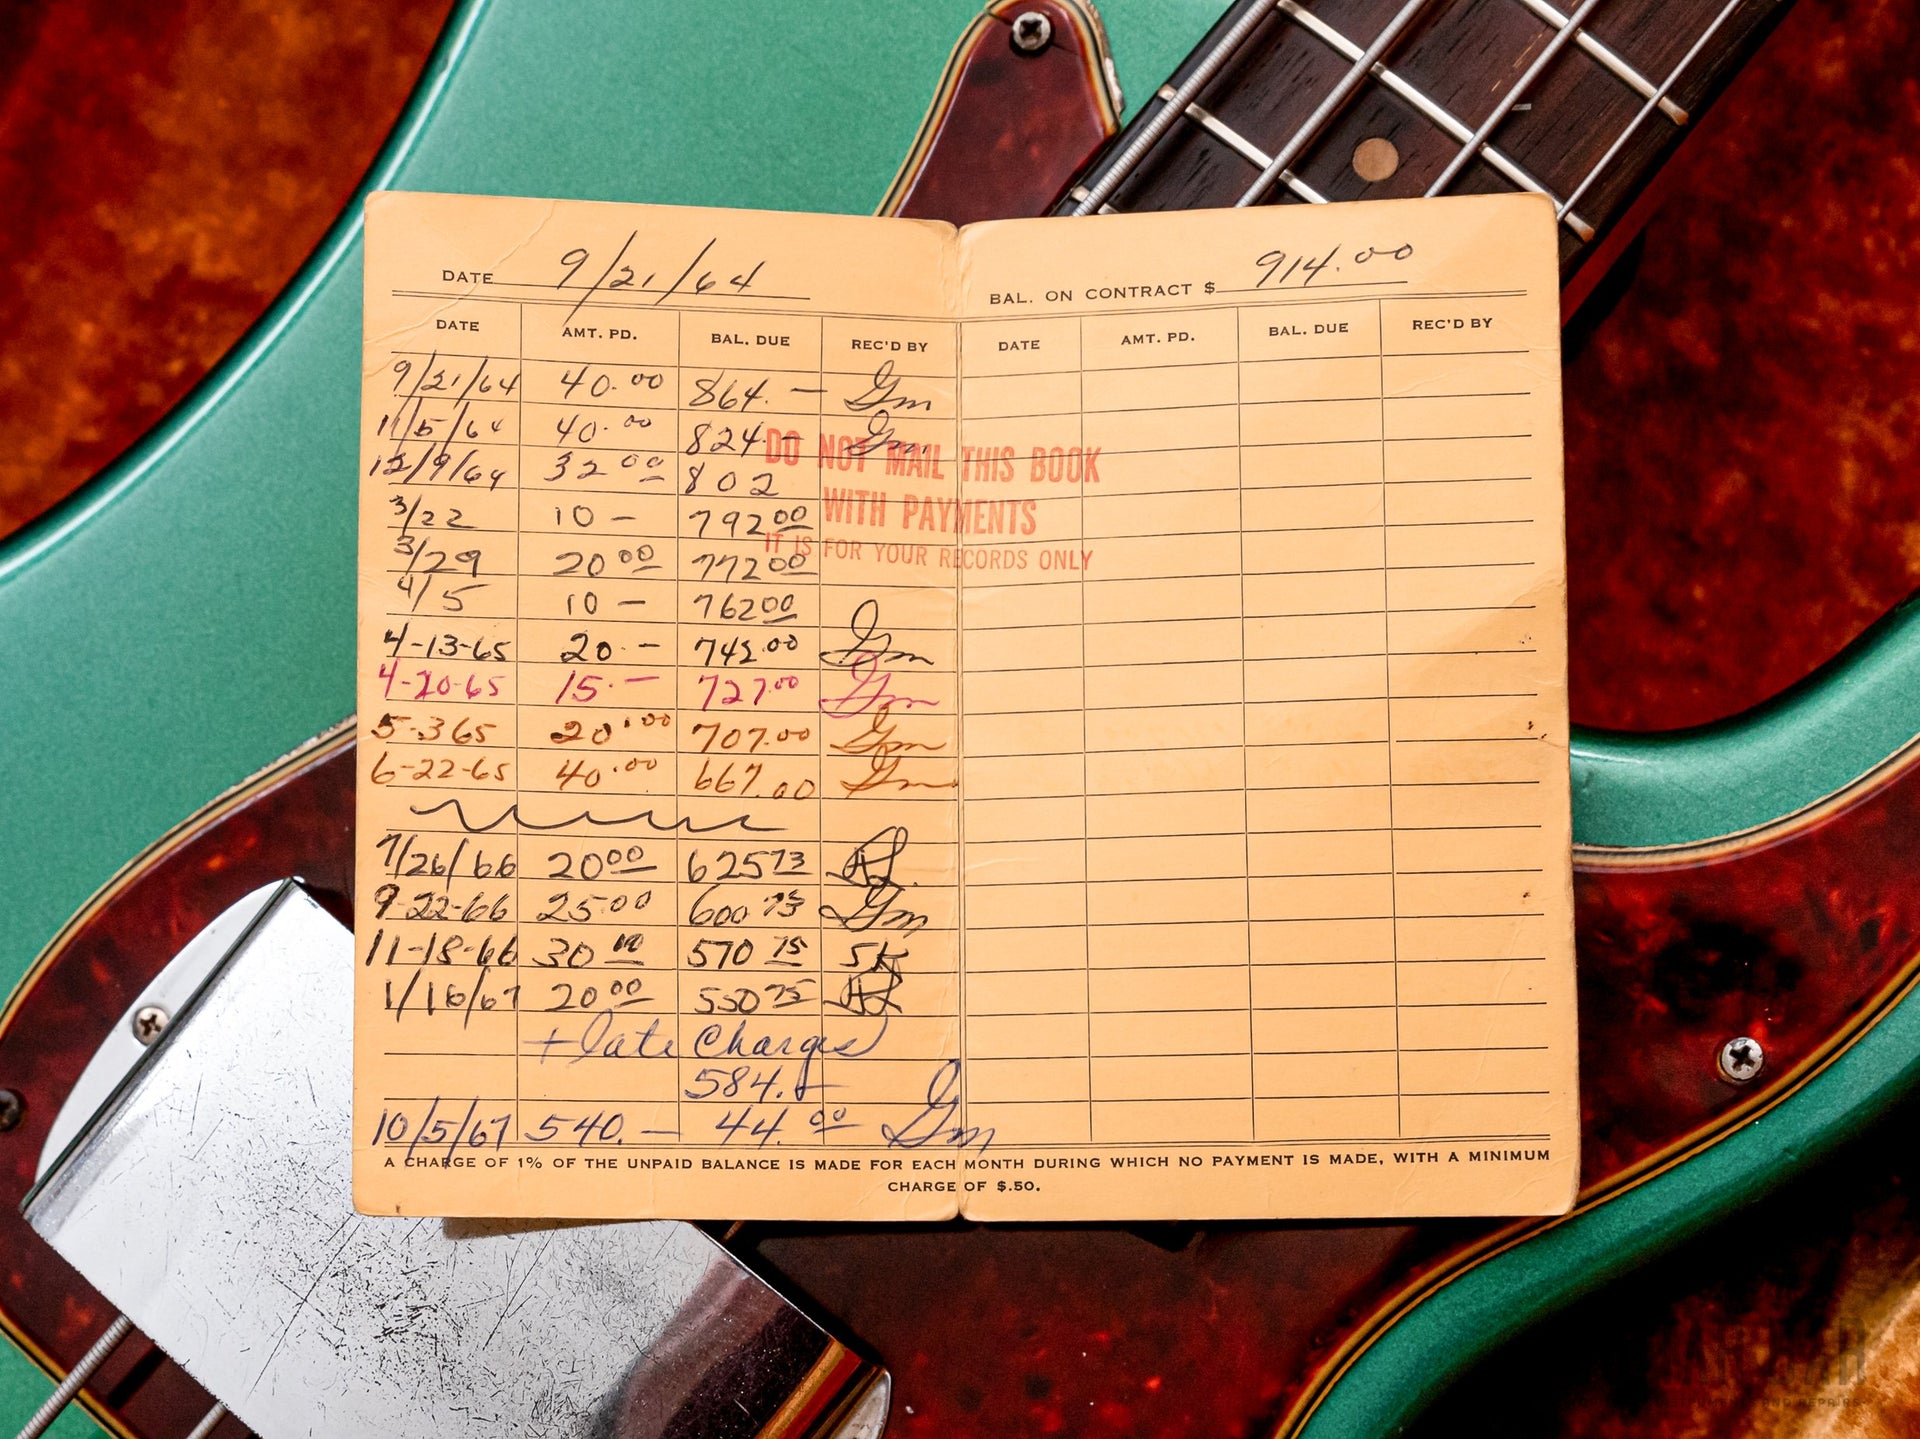 DATE 9/21/64 BAL. ON CONTRACT $ 914.00
DATE AMT. PD. BAL. DUE REC'D BY DATE AMT. PD. BAL. DUE REC'D BY
9/21/64 40.00 864.— Gm
11/5/64 40.00 824.— Gm
12/9/64 32 00 802
3/22 10 — 792 00
3/29 20 00 772 00
4/5 10 — 762 00
4-13-65 20.— 742.00 Gm
4-20-65 15.— 727.00 Gm
5-3 65 20.00 707.00 Gm
6-22-65 40.00 667.00 Gm
7/26/66 20 00 625 73
9-22-66 25.00 600 73 Gm
11-18-66 30 570 75 SK
1/16/67 20 00 550 75
+ late Charges
584.—
10/5/67 540.— 44.00 Gm
DO NOT MAIL THIS BOOK
WITH PAYMENTS
IT IS FOR YOUR RECORDS ONLY
A CHARGE OF 1% OF THE UNPAID BALANCE IS MADE FOR EACH MONTH DURING WHICH NO PAYMENT IS MADE, WITH A MINIMUM
CHARGE OF $.50.
AND REPAIRS